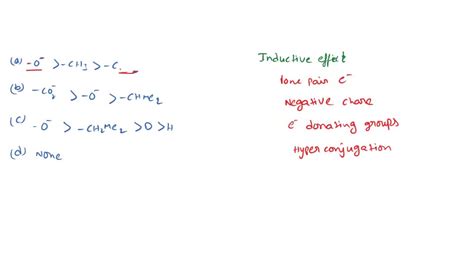 (a) -O⁻ > -CH₃ > -C
(b) -CO₂⁻ > -O⁻ > -CHMe₂
(c) -O⁻ > -CH₂Me₂ > D > H
(d) None
Inductive effect
lone pair e⁻
Negative charge
e⁻ donating groups
Hyperconjugation